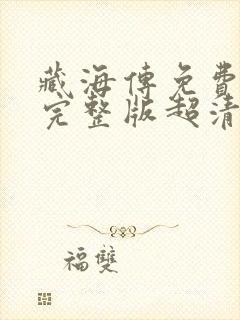 藏海傳免費
完整版超清
福雙